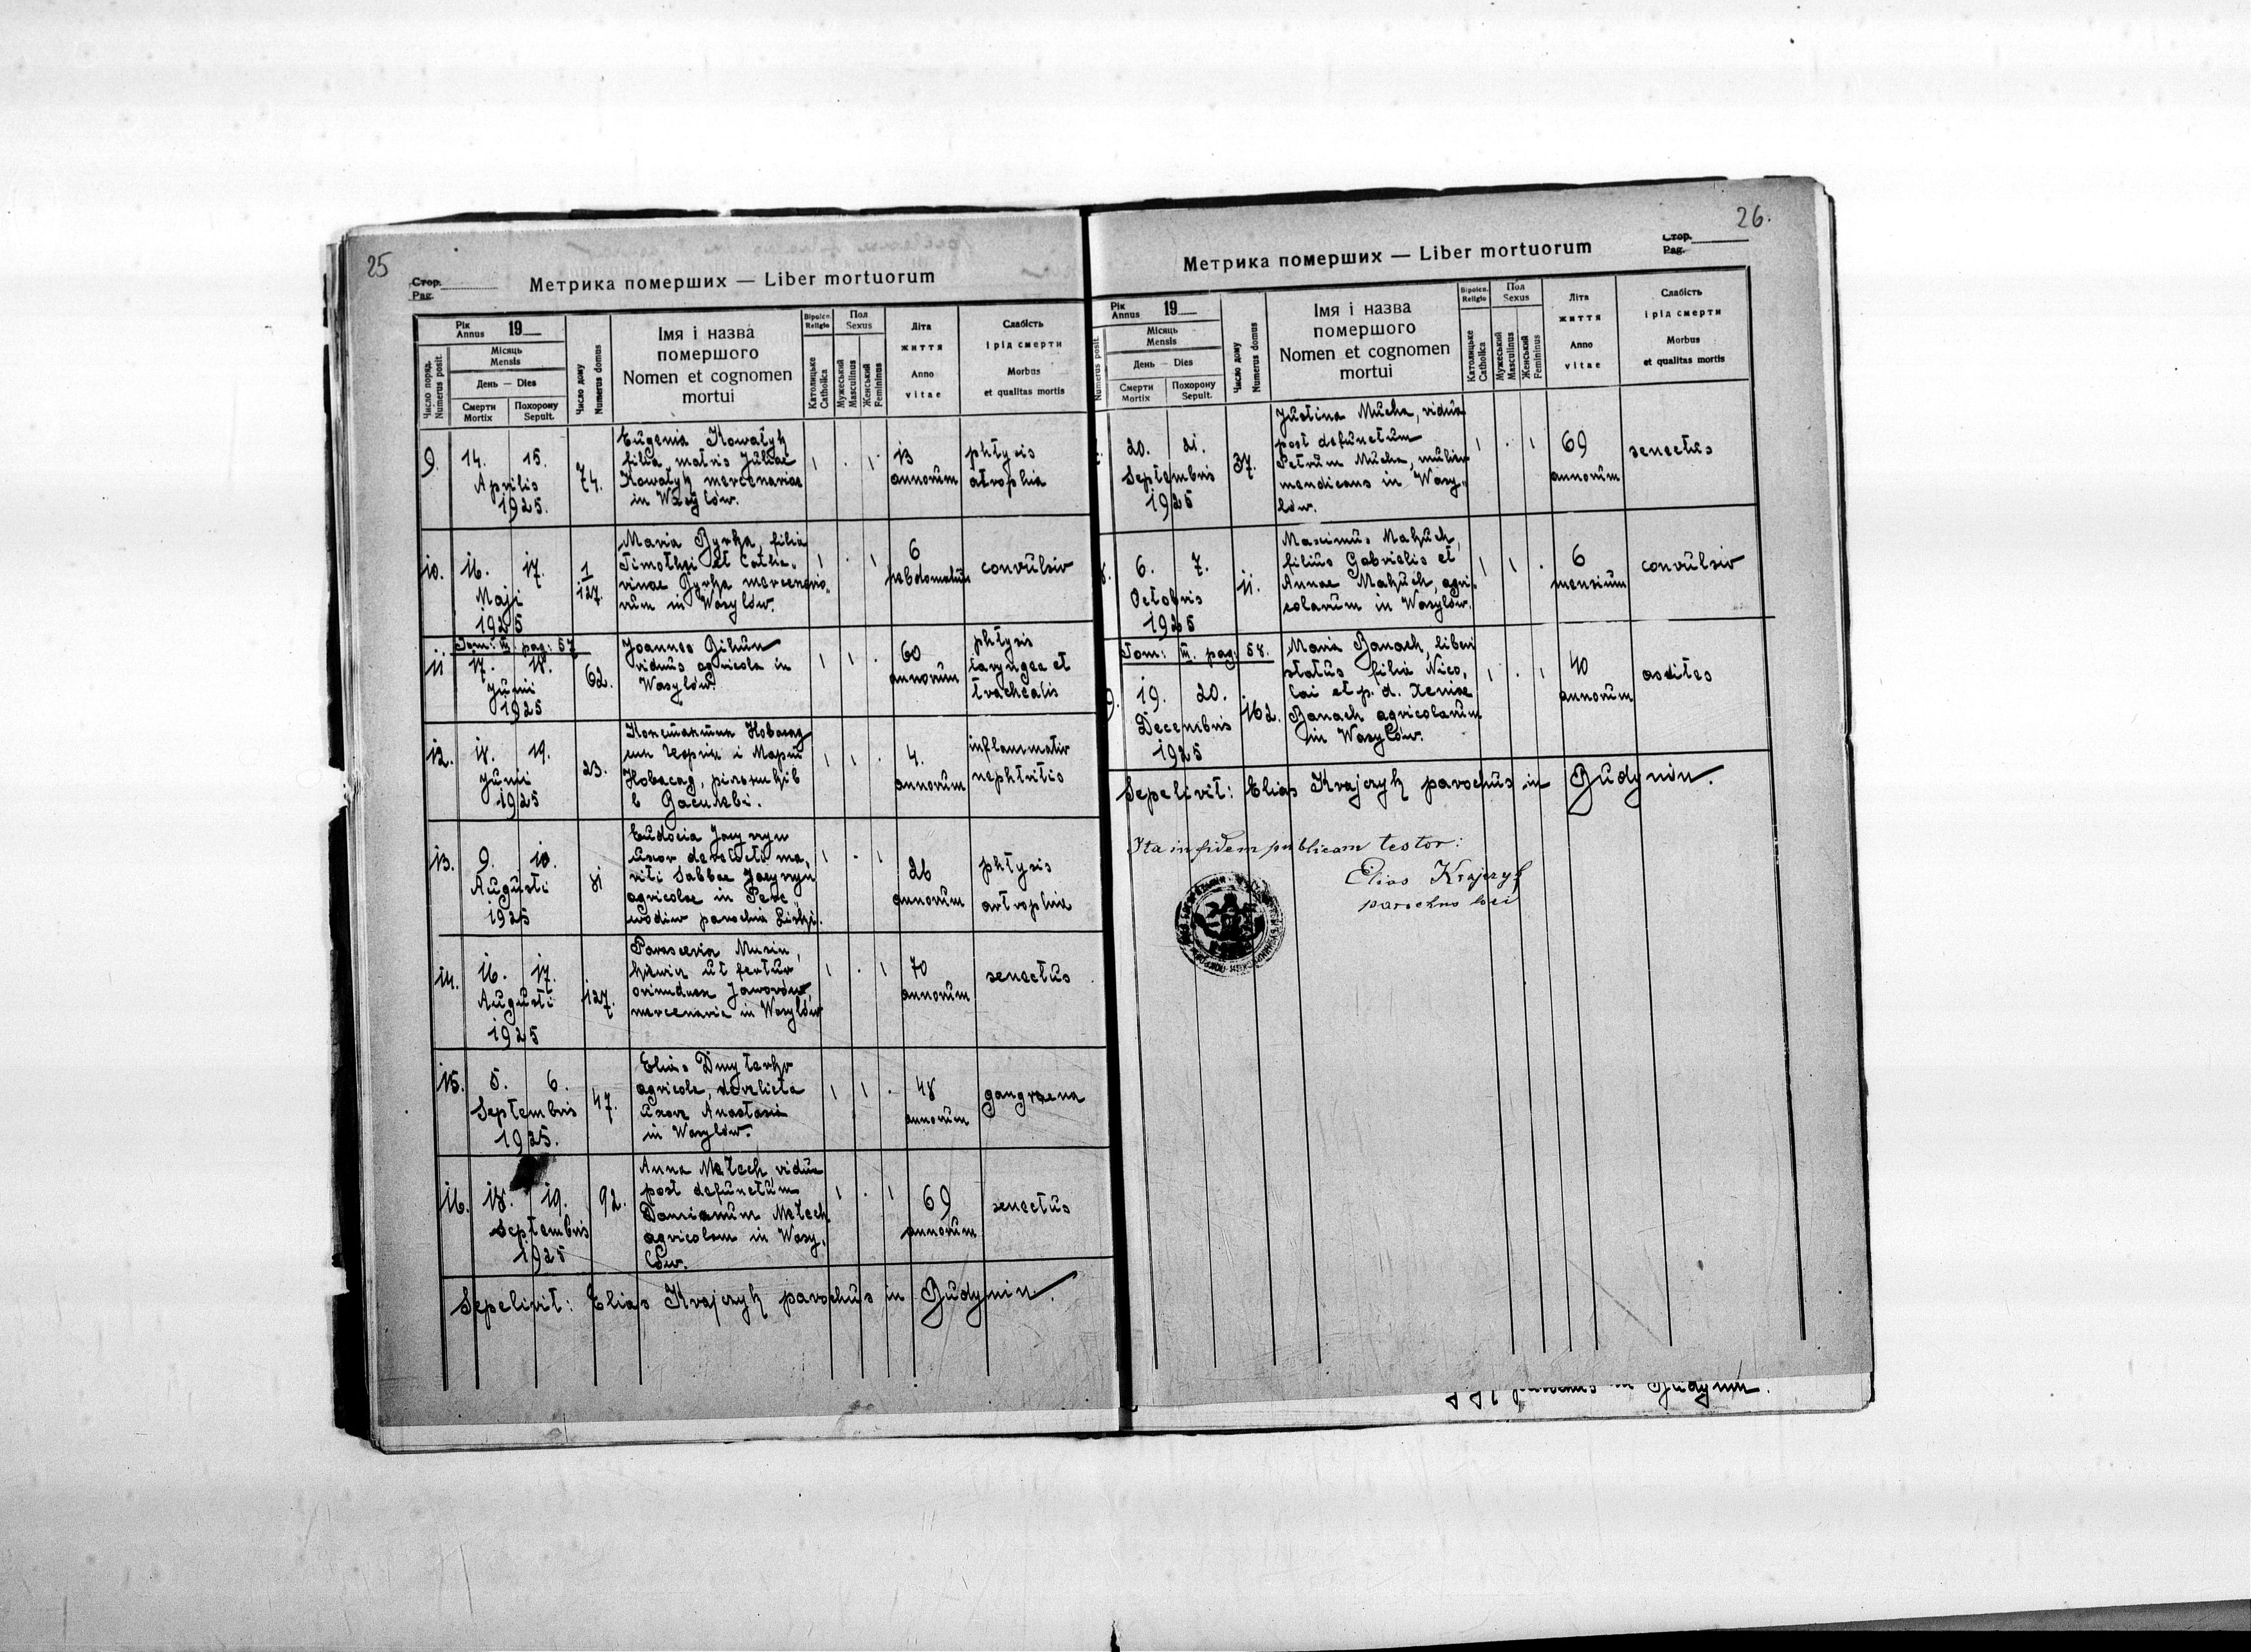 25
Стор.
Pag.
Метрика померших — Liber mortuorum
Рік
Annus 19
Число поряд.
Numerus posit.
Місяць
Mensis
День — Dies
Смерти
Mortix
Похорону
Sepult.
Число дому
Numerus domus
Імя і назва
помершого
Nomen et cognomen
mortui
Віроісп.
Religio
Католицьке
Catholica
Пол
Sexus
Мужеський
Masculinus
Женський
Femininus
Літа
життя
Anno
vitae
Слабість
і рід смерти
Morbus
et qualitas mortis
9.
14. 15.
Aprilis
1925.
74.
Eugenia Kowałyk
filia matris Juliae
Kowałyk mercenariae
in Wasylów.
13
annorum
phtysis
atrophia
10.
16. 17.
Maji
1925
1
127.
Maria Byrka, filia
Timothei et Catha-
rinae Byrka mercenario-
rum in Wasylów.
6
hebdomatum
convulsio
Tom: III. pag: 57
11
17. 18.
Junii
1925
62.
Joannes Bihun
viduus agricola in
Wasylów.
60
annorum
phtysis
laryngea et
trachealis
12.
18. 19.
Junii
1925
23.
Константин Новосад
син Георгія і Марії
Новосад, рільників
в Василеві.
4.
annorum
inflammatio
nephritis
13.
9. 10.
Augusti
1925
81
Eudocia
uxor derelicti ma-
riti Sabbae
agricolae in Pere-
wodiw parochia Liski.
26
annorum
phtysis
artrophia
14.
16. 17.
Augusti
1925
127.
Parascevia
ut fertur
oriunduex Jaworów,
mercenaria in Wasylów
70
annorum
senectus
15.
5. 6.
Septembris
1925.
47.
Elias Dmyterko
agricola, derelicta
uxore Anastasia
in Wasylów.
48
annorum
gangraena
16.
18. 19.
Septembris
1925
92.
Anna Melech vidua
post defunctum
Damianum Melech
agricolam in Wasy-
lów.
69
annorum
senectus
Sepelivit: Elias Krajczyk parochus in Budynin.
26.
Стор.
Pag.
Метрика померших — Liber mortuorum
Рік
Annus 19
Numerus posit.
Місяць
Mensis
День — Dies
Смерти
Mortix
Похорону
Sepult.
Число дому
Numerus domus
Імя і назва
помершого
Nomen et cognomen
mortui
Віроісп.
Religio
Католицьке
Catholica
Пол
Sexus
Мужеський
Masculinus
Женський
Femininus
Літа
життя
Anno
vitae
Слабість
і рід смерти
Morbus
et qualitas mortis
20. 21.
Septembris
1925
37.
Justina Mucha, vidua
post defunctum
Petrum Mucha, mulier
mendicans in Wasy-
lów.
69
annorum
senectus
6. 7.
Octobris
1925
11.
Maximus Makuch,
filius Gabrielis et
Annae Makuch, agri-
colarum in Wasylów.
6
mensium
convulsio
Tom: III. pag: 58.
19. 20.
Decembris
1925
162.
Maria Banach, liberi
status filia Nico-
lai et p. d. Xeniae
Banach agricolarum
in Wasylów.
40
annorum
ascites
Sepelivit: Elias Krajczyk parochus in Budynin.
Ita in fidem publicam testor:
Elias Krajczyk
parochus loci
parochus in Budynin.